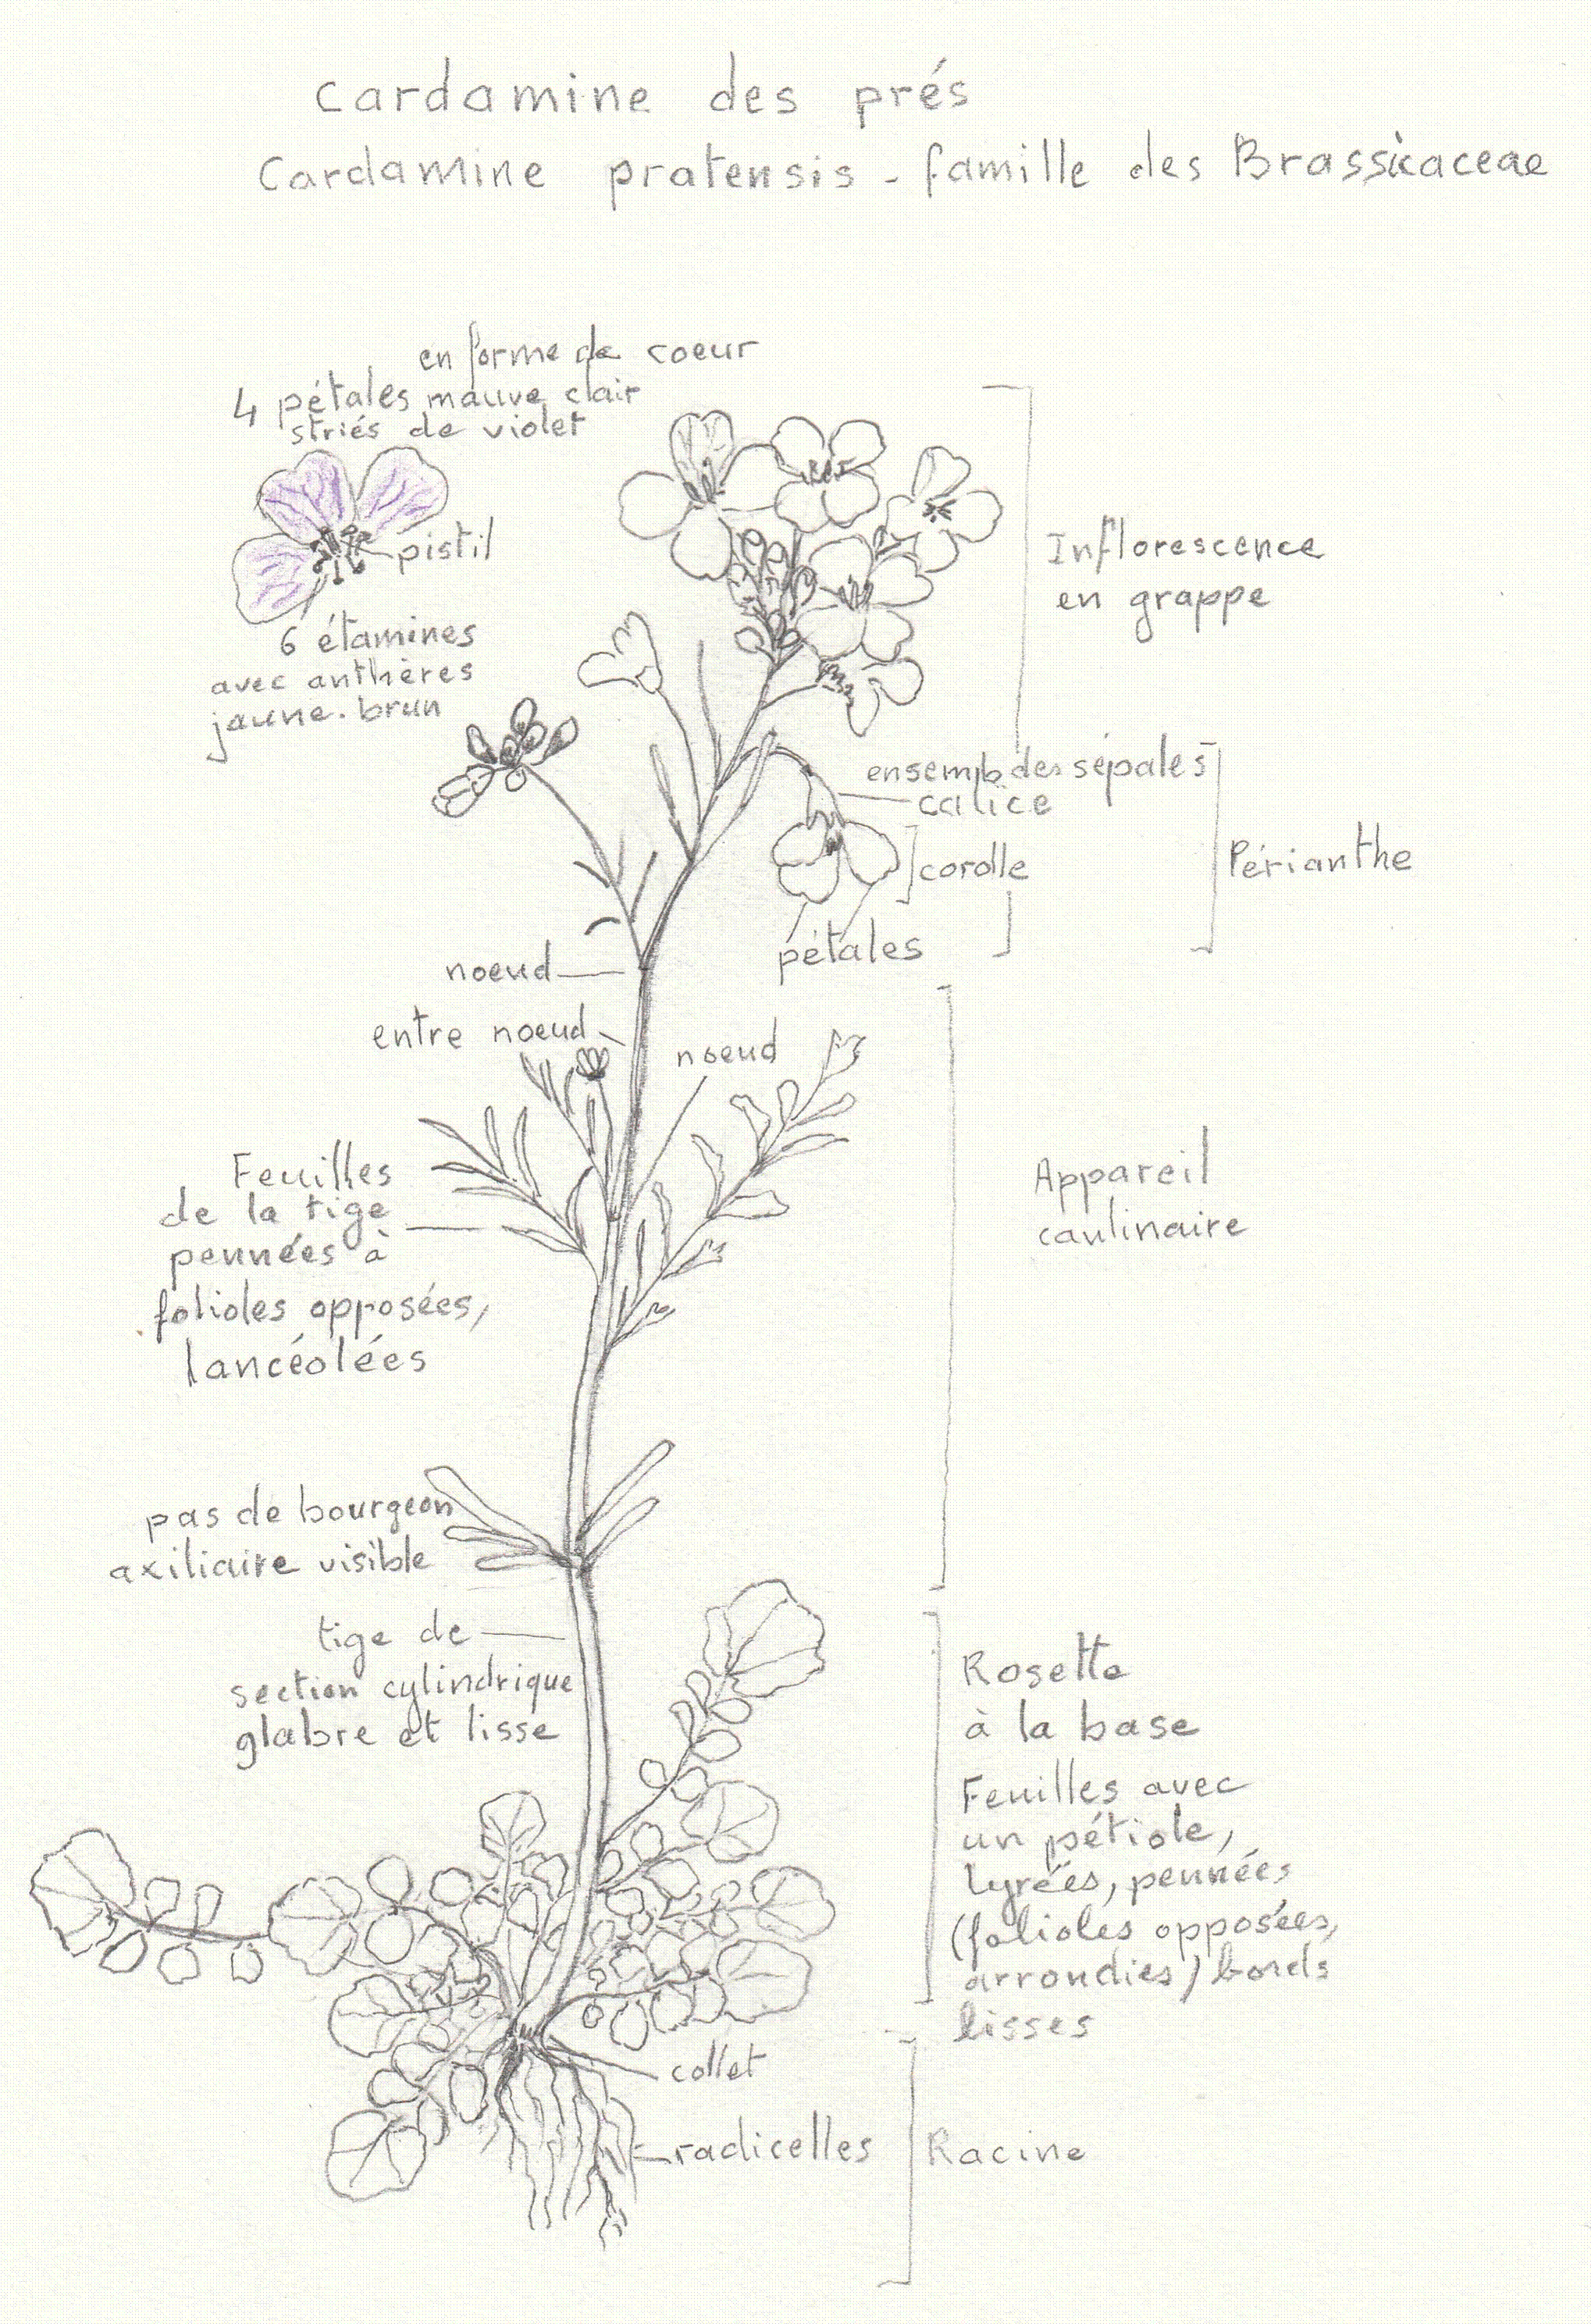 Cardamine des prés
Cardamine pratensis - famille des Brassicaceae
en forme de coeur
4 pétales mauve clair
striés de violet
pistil
6 étamines
avec anthères
jaune.brun
Inflorescence
en grappe
ensemb des sépales
calice
corolle
Périanthe
pétales
noeud
entre noeud
noeud
Feuilles
de la tige
pennées à
folioles opposées,
lancéolées
Appareil
caulinaire
pas de bourgeon
axiliaire visible
tige de
section cylindrique
glabre et lisse
Rosette
à la base
Feuilles avec
un pétiole,
lyrées, pennées
(folioles opposées,
arrondies) bords
lisses
collet
radicelles
Racine